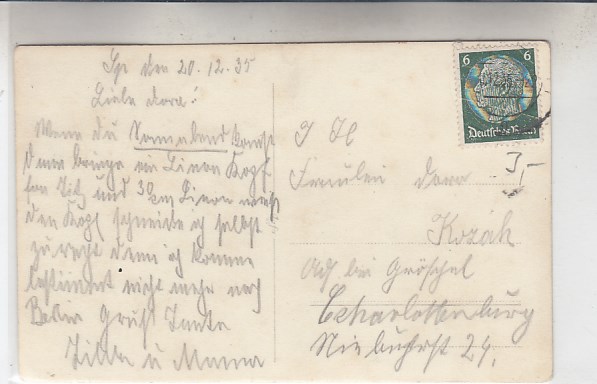 Sp den 20.12.35
Liebe Dora!
Wenn du Sonnabend kommst
dann bringe ein Linon Kopf
von Titz und 30 cm Linon
den Kopf schneide ich selbst
zurecht denn ich komme
bestimmt nicht mehr nach
Berlin Gruß Tante
u Mama
6 6
Deutsches Reich
Fräulein Dora
Kozák
bei Gröschel
Charlottenburg
Niebuhrst 24.
3,-